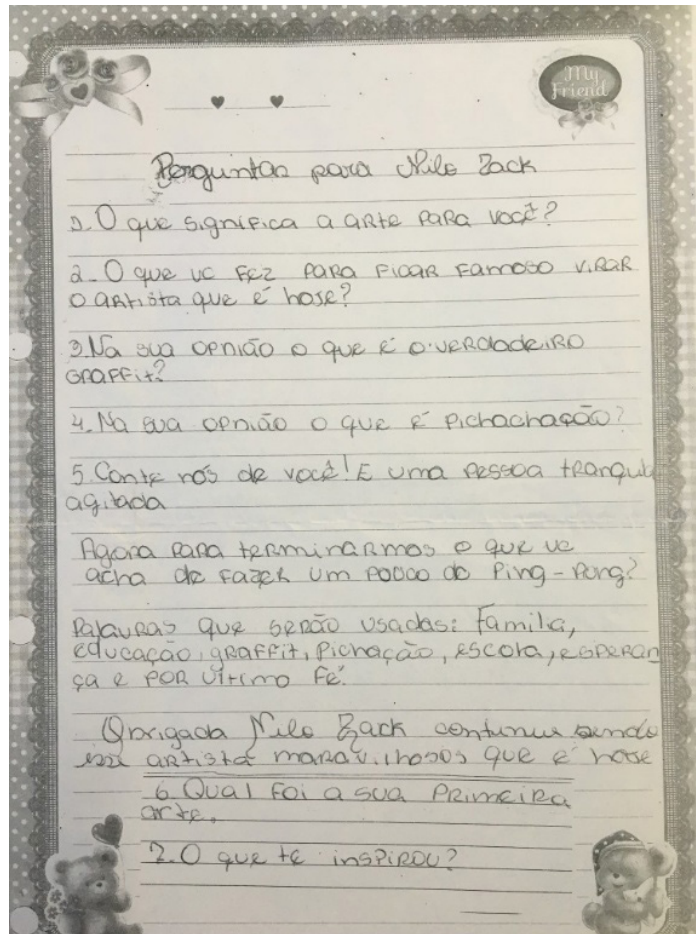 My
Friend
Perguntas para Nilo Zack
1. O que significa a arte para você?
2. O que vc fez para ficar famoso virar
o artista que é hose?
3. Na sua opnião o que é o verdadeiro
graffit?
4. Na sua opnião o que é pichachação?
5. Conte nós de você! E uma pessoa tranquila
agitada
Agora para terminarmos o que vc
acha de fazer um pouco do Ping-Pong?
Palavras que serão usadas: Família,
educação, graffit, pichação, escola, esperan
ça e por último fé.
Obrigada Nilo Zack continue sendo
esse artista maravilhosos que é hose
6. Qual foi a sua primeira
arte.
7. O que te inspirou?